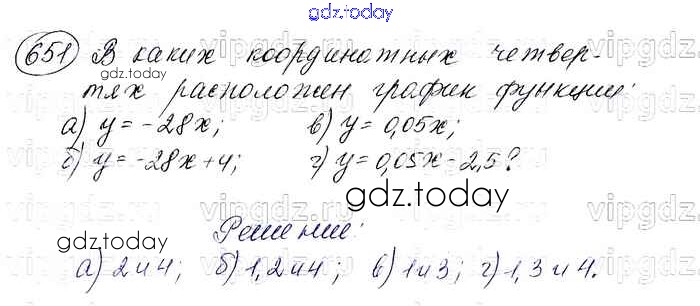 gdz.today
651 В каких координатных четвер-
gdz.today
тях расположен график функции:
а) y = -28x; в) y = 0,05x;
б) y = -28x + 4; г) y = 0,05x - 2,5?
gdz.today
Решение:
gdz.today
а) 2 и 4; б) 1, 2 и 4; в) 1 и 3; г) 1, 3 и 4.